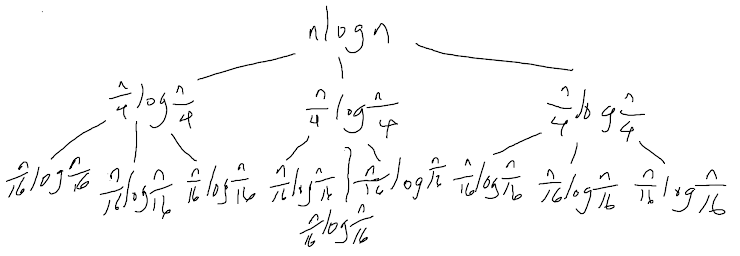 n log n
n/4 log n/4 n/4 log n/4 n/4 log n/4
n/16 log n/16 n/16 log n/16 n/16 log n/16 n/16 log n/16 n/16 log n/16 n/16 log n/16 n/16 log n/16 n/16 log n/16
n/16 log n/16